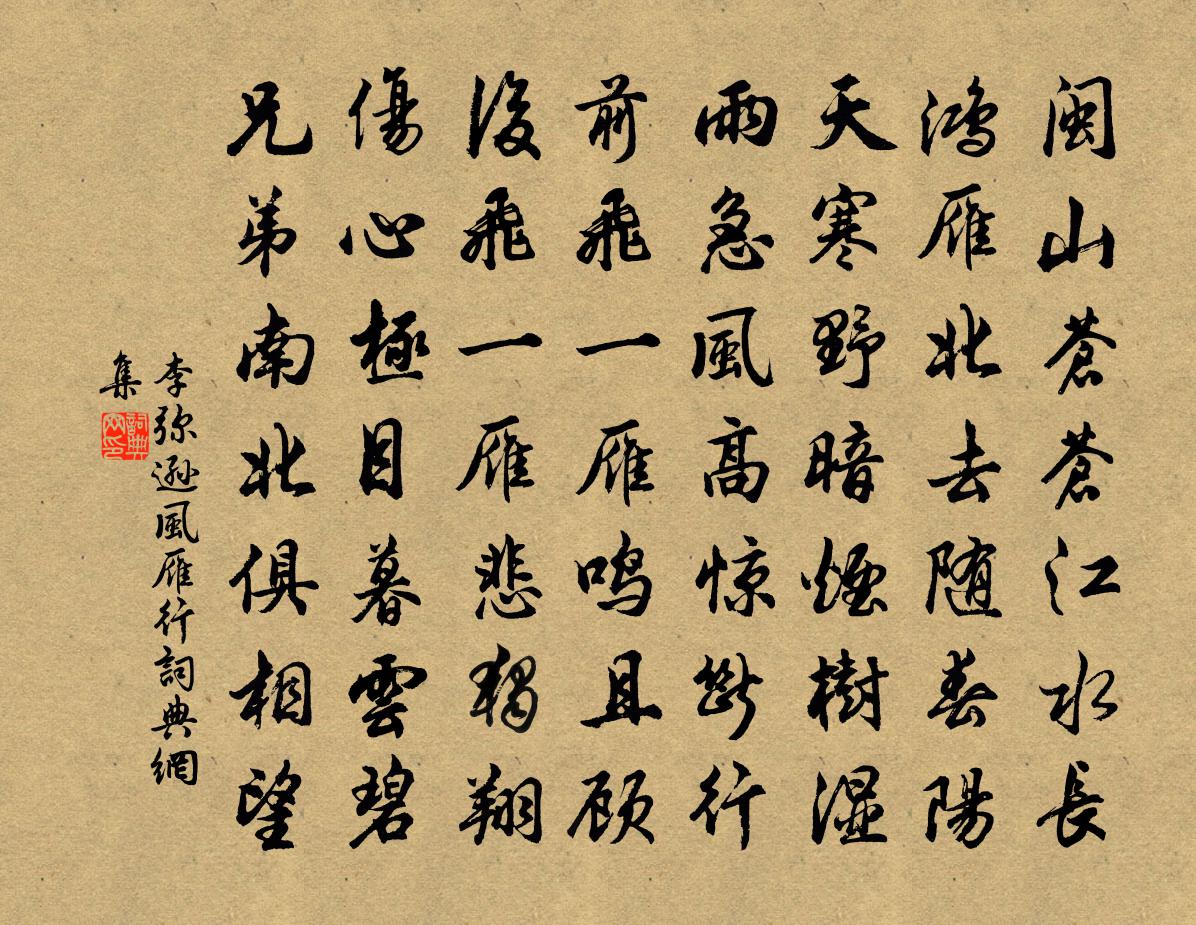 闽山蒼蒼江水長
鴻雁北去随春陽
天寒野暗煙樹濕
雨急風高惊斷行
前飛一雁鸣且顾
後飛一雁悲獨翔
傷心極目暮雲碧
兄弟南北俱相望
李弥遜風雁行詞典網
集
詞典網印